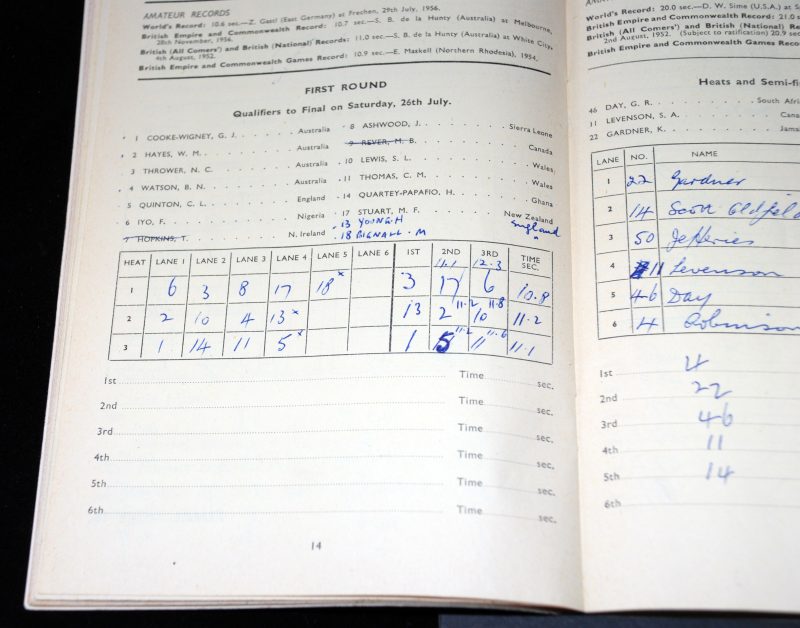 AMATEUR RECORDS
World's Record: 10.6 sec.—Z. Gastl (East Germany) at Frechen, 29th July, 1956.
British Empire and Commonwealth Record: 10.7 sec.—S. B. de la Hunty (Australia) at Melbourne,
28th November, 1956.
British (All Comers') and British (National) Records: 11.0 sec.—S. B. de la Hunty (Australia) at White City,
4th August, 1952.
British Empire and Commonwealth Games Record: 10.9 sec.—E. Maskell (Northern Rhodesia), 1954.
FIRST ROUND
Qualifiers to Final on Saturday, 26th July.
1 COOKE-WIGNEY, G. J. Australia
2 HAYES, W. M. Australia
3 THROWER, N. C. Australia
4 WATSON, B. N. Australia
5 QUINTON, C. L. England
6 IYO, F. Nigeria
7 HOPKINS, T. N. Ireland
8 ASHWOOD, J. Sierra Leone
9 REVER, M. B. Canada
10 LEWIS, S. L. Wales
11 THOMAS, C. M. Wales
14 QUARTEY-PAPAFIO, H. Ghana
17 STUART, M. F. New Zealand
13 YOUNG. H England
18 BIGNALL. M "
HEAT LANE 1 LANE 2 LANE 3 LANE 4 LANE 5 LANE 6 1ST 2ND 3RD TIME SEC.
1 6 3 8 17 18x 3 17 11.1 6 12.3 10.8
2 2 10 4 13x 13 2 11.2 10 11.8 11.2
3 1 14 11 5x 1 5 11.2 11 11.6 11.1
1st Time sec.
2nd Time sec.
3rd Time sec.
4th Time sec.
5th Time sec.
6th Time sec.
14
World's Record: 20.0 sec.—D. W. Sime (U.S.A.) at
British Empire and Commonwealth Record: 21.0
British (All Comers') and British (National)
2nd August, 1952. (Subject to ratification) 20.9
British Empire and Commonwealth Games Record:
Heats and Semi-fi
46 DAY, G. R. South Afri
11 LEVENSON, S. A. Cana
22 GARDNER, K. Jama
LANE NO. NAME
1 22 Gardner
2 14 Scott Oldfield
3 50 Jefferies
4 11 Levenson
5 46 Day
6 4 Robinson
1st 4
2nd 22
3rd 46
4th 11
5th 14
6th